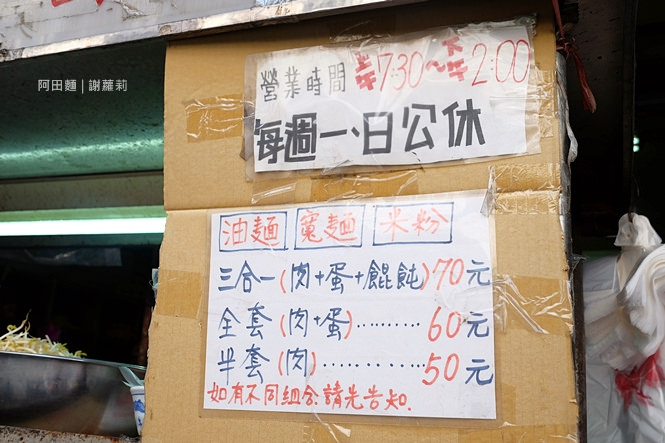 阿田麵 | 謝蘿莉
營業時間 上午7:30~下午2:00
每週一、日公休
油麵 寬麵 米粉
三合一(肉+蛋+餛飩)70元
全套(肉+蛋)………60元
半套(肉)…………50元
如有不同組合:請先告知.